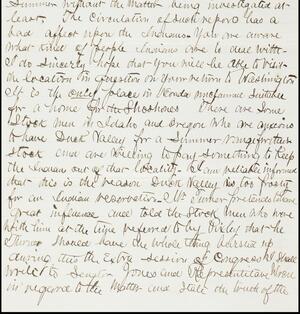 Summer without the matter being investigated at
least. The circulation of such reports has a
bad affect upon the Indians. You are aware
what kind of people Indians are to deal with.
I do sincerely hope that you will be able to visit
the location in question on your return to Washington
It is the only place in Nevada unoccupied suitable
for a home for the Shoshones. There are some
Stock men in Idaho and Oregon who are anxious
to have Duck Valley for a Summer range for their
Stock and are willing to pay something to keep
the Indian out of that locality. I am reliably informed
that this is the reason Duck Valley is too frosty
for an Indian reservation. Mr Turner pretends to have
Great influence and told the Stock men who were
with him at the time referred to by
Turner should have the whole thing
during this the Extra Session of Congress. I shall
write to Senator Jones and Representative
in regard to the matter and state the truth of the